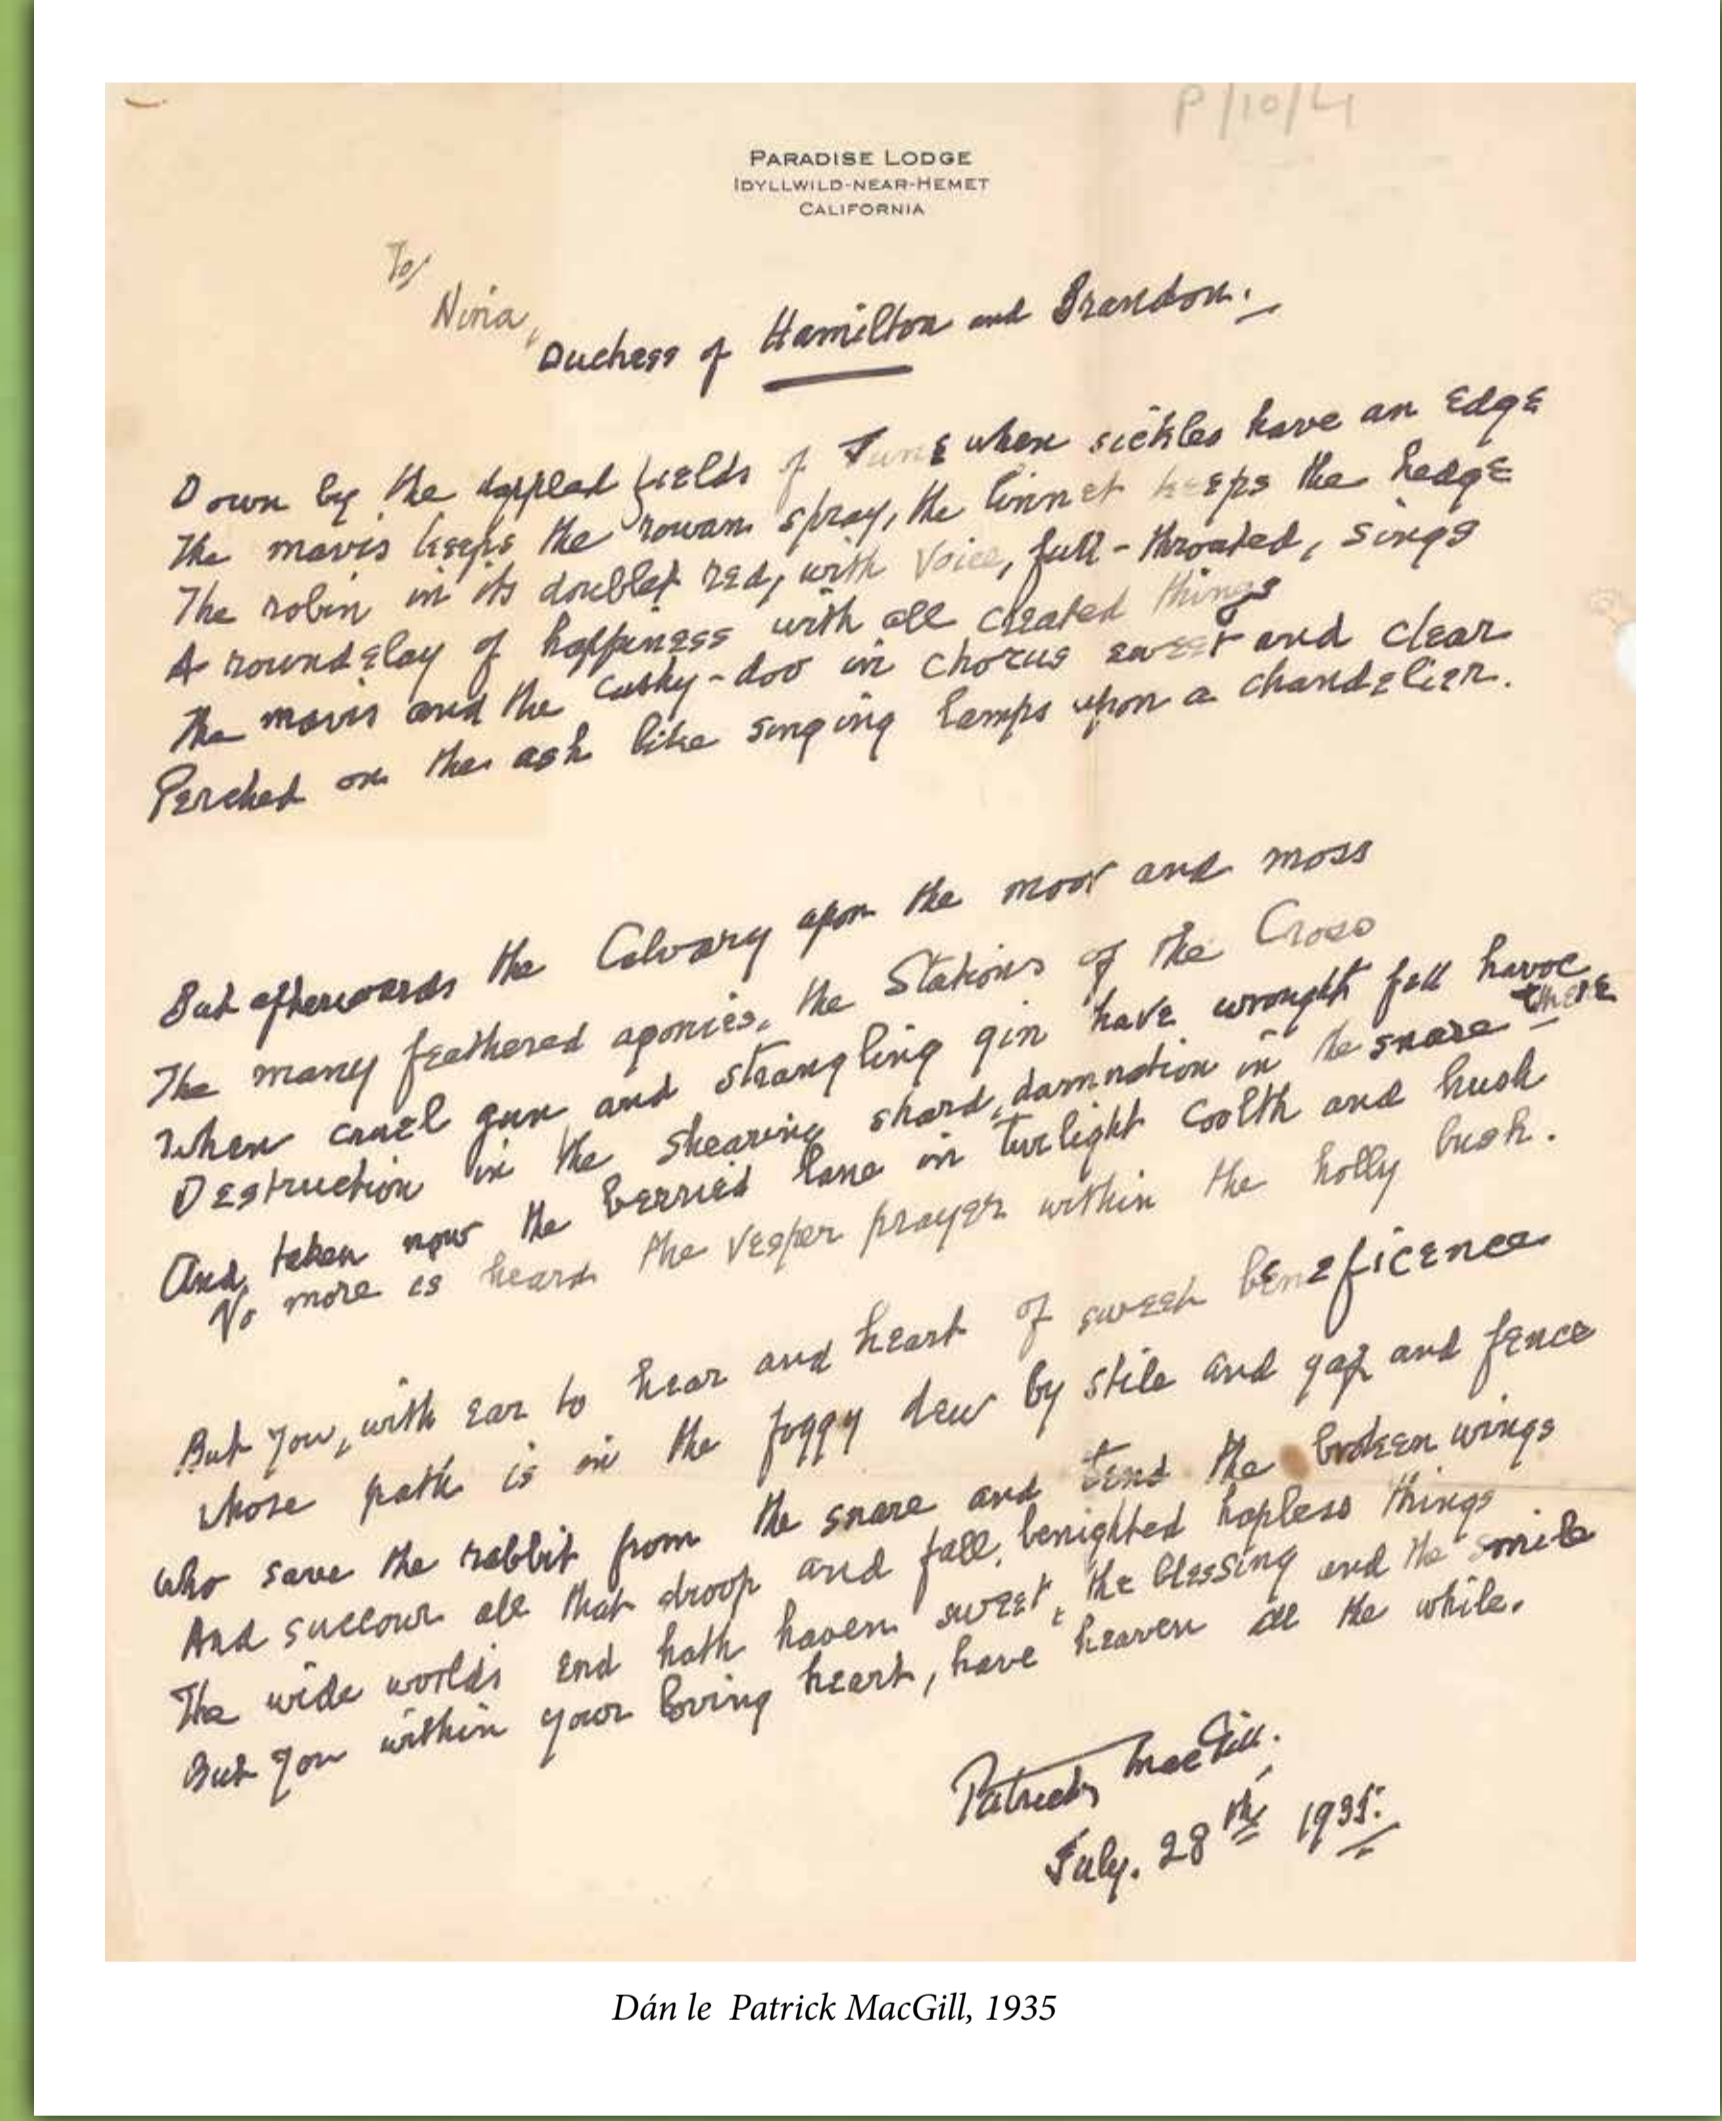 P/10/4
PARADISE LODGE
IDYLLWILD-NEAR-HEMET
CALIFORNIA
To
Nina,
Duchess of Hamilton and Brandon.
Down by the dappled fields of June when sickles have an edge
The mavis keeps the rowan spray, the linnet keeps the hedge
The robin in its doublet red, with voice, full-throated, sings
A roundelay of happiness with all created things
The mavis and the Cushy-doo in chorus sweet and clear
Perched on the ash like singing lamps upon a chandelier.
But afterwards the Calvary upon the moor and moss
The many feathered agonies, the Stations of the Cross
When cruel gun and strangling gin have wrought fell havoc there
Destruction in the shearing shard, damnation in the snare
And taken now the berried lane in twilight coolth and hush
No more is heard the vesper prayer within the holly bush.
But you, with ear to hear and heart of sweet beneficence
Whose path is in the foggy dew by stile and gap and fence
Who save the rabbit from the snare and tend the broken wings
And succour all that droop and fall, benighted hapless things
The wide worlds end hath haven sweet, the blessing and the smile
But you within your loving heart, have heaven all the while.
Patrick MacGill.
July. 28th 1935.
Dán le Patrick MacGill, 1935